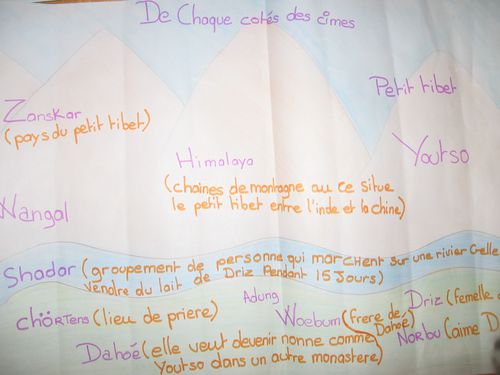 De Chaque cotés des cimes
Petit tibet
Zanskar
(pays du petit tibet)
Youtso
Himalaya
(chaines de montagne au ce situe
le petit tibet entre l'inde et la chine)
Nangal
Shadar (groupement de personne qui marchent sur une rivier
vendre du lait de Driz Pendant 15 Jours)
Adung
Driz (femelle
chörtens (lieu de priere)
Woebum (frere de
Dahoé)
Norbu (aime D
Dahoé (elle veut devenir nonne comme
Youtso dans un autre monastere)